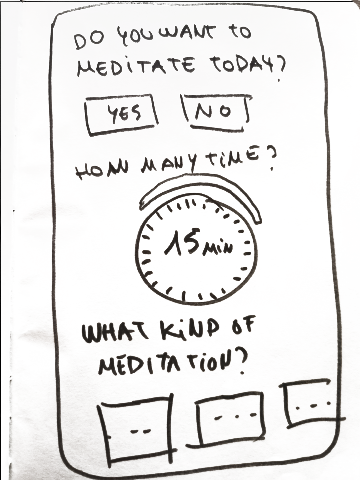 DO YOU WANT TO
MEDITATE TODAY?
YES NO
HOW MANY TIME?
15 MIN
WHAT KIND OF
MEDITATION?
-- --- ...